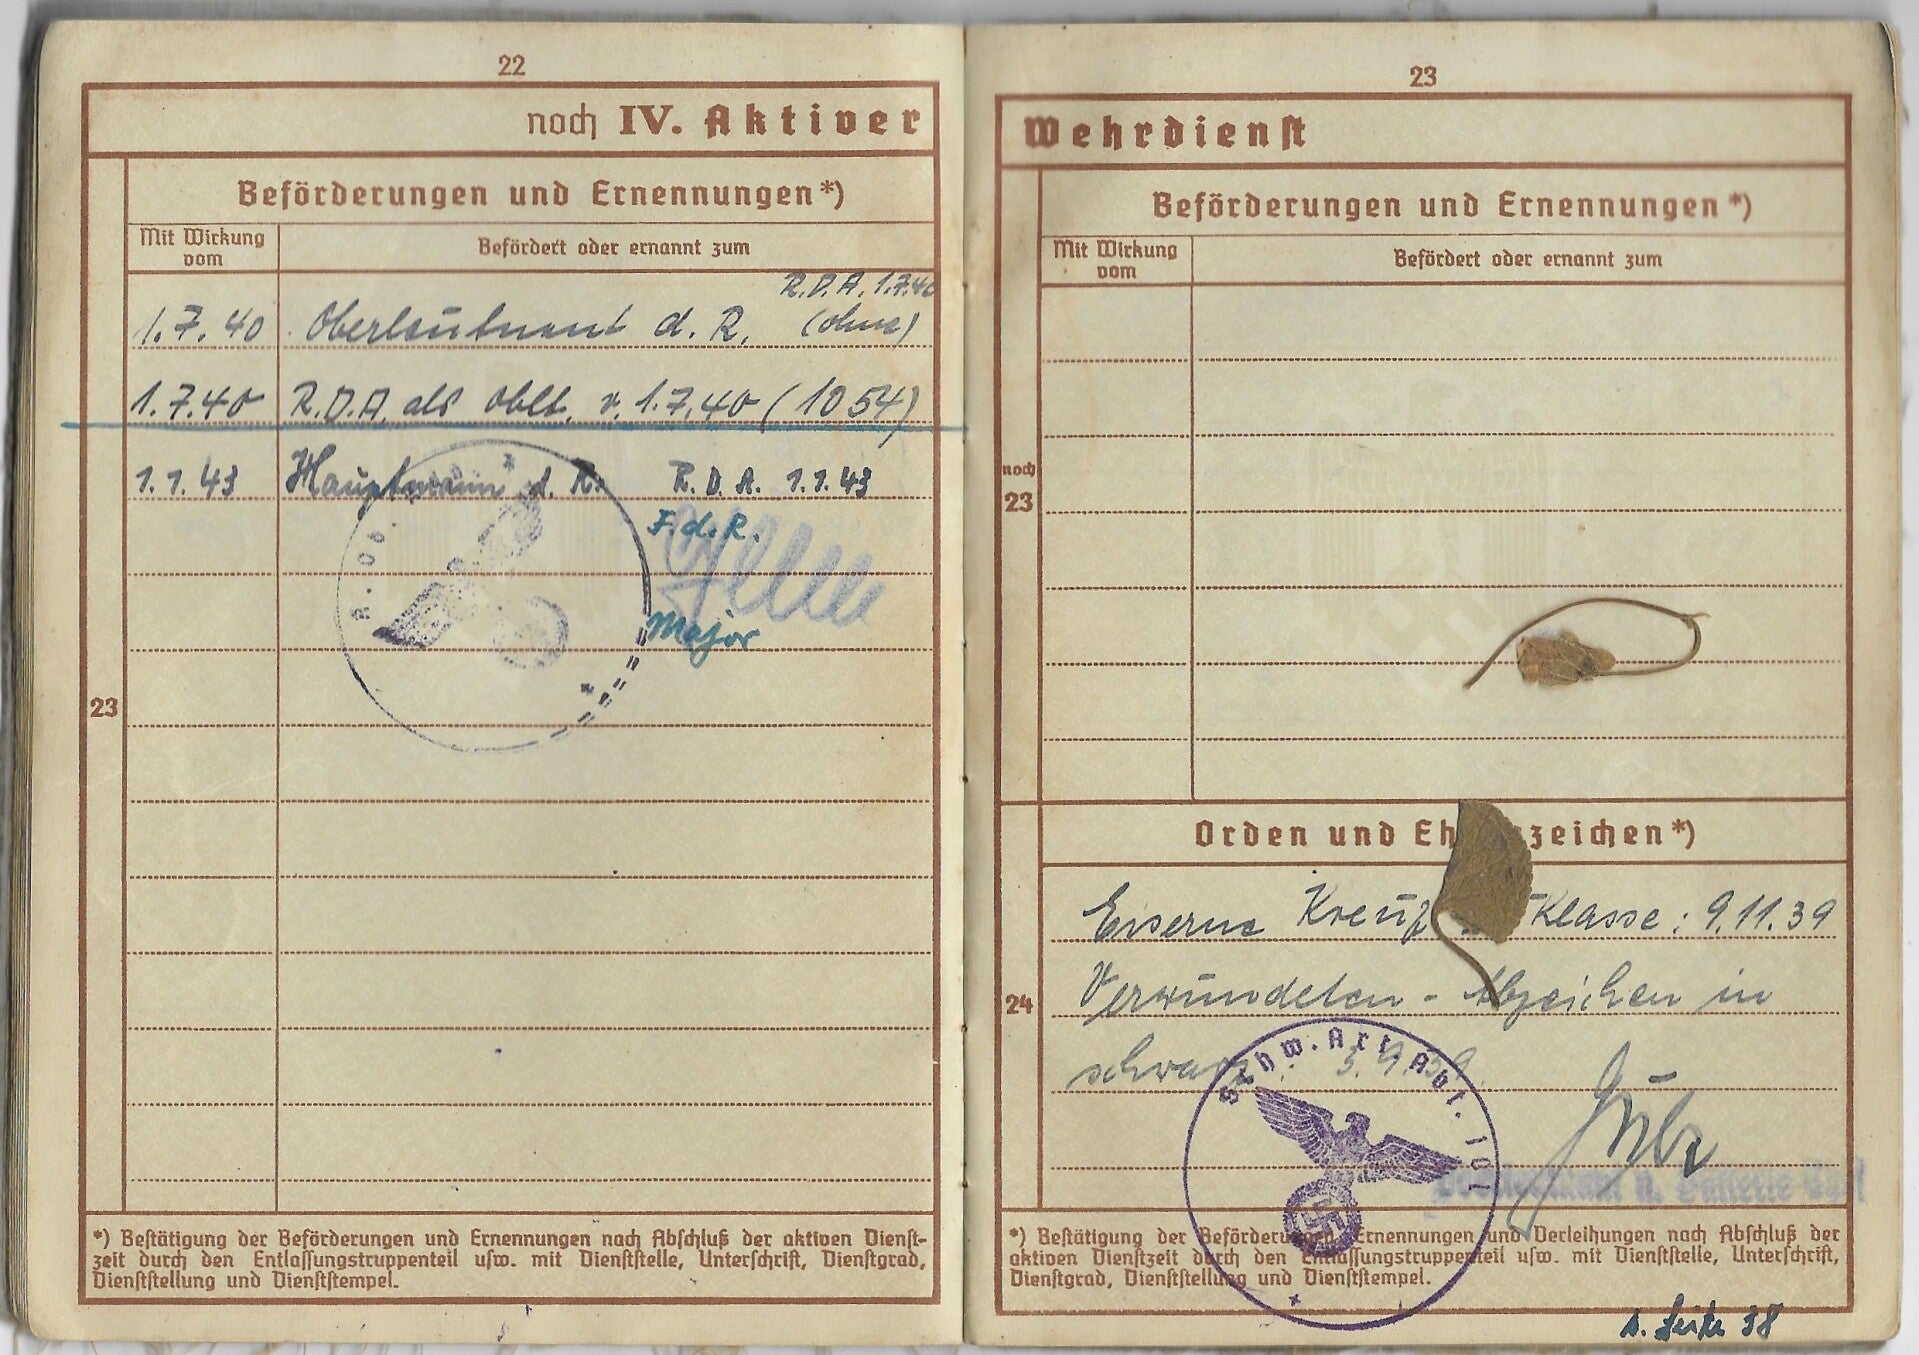 22
noch IV. Aktiver
Beförderungen und Ernennungen*)
Mit Wirkung vom
Befördert oder ernannt zum
R.D.A. 1.7.40
1.7.40 Oberleutnant d. R. (ohne)
1.7.40 R.D.A. als Oblt. v. 1.7.40 (1054)
1.1.43 Hauptmann d. R. R.D.A. 1.1.43
F.d.R.
Major
23
*) Bestätigung der Beförderungen und Ernennungen nach Abschluß der aktiven Dienst-
zeit durch den Entlassungstruppenteil usw. mit Dienststelle, Unterschrift, Dienstgrad,
Dienststellung und Dienststempel.
23
Wehrdienst
Beförderungen und Ernennungen*)
Mit Wirkung vom
Befördert oder ernannt zum
noch
23
Orden und Eh zeichen*)
Eiserne Kreuz Klasse: 9.11.39
Verwundeten-Abzeichen in
schwarz:
24
Schw. Art. Abt. 101
*) Bestätigung der Beförderungen Ernennungen und Verleihungen nach Abschluß der
aktiven Dienstzeit durch den Entlassungstruppenteil usw. mit Dienststelle, Unterschrift,
Dienstgrad, Dienststellung und Dienststempel.
s. Seite 38